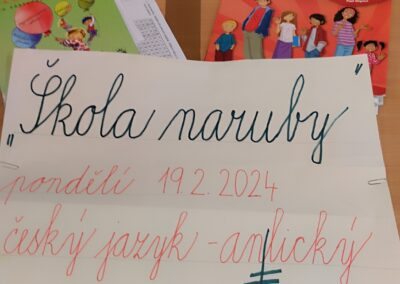 „Škola naruby"
pondělí 19.2.2024
český jazyk - anlický